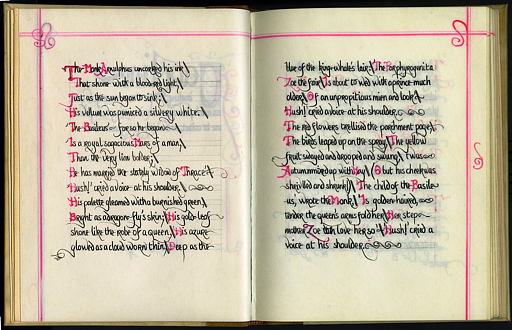 The Monk Arnulphus uncorked his ink
That shone with a blood-red light
Just as the sun began to sink;
His vellum was pumiced a silvery white;
"The Basileus"—for so he began—
"Is a royal sagacious Mars of a man,
Than the very lion bolder;
He has married the stately widow of Thrace—"
"Hush!" cried a voice at his shoulder.
His palette gleamed with a burnished green,
Bright as a dragon-fly's skin:
His gold-leaf
shone like the robe of a queen,
His azure
glowed as a cloud worn thin,
Deep as the
blue of the king-whale's lair:
"The Porphyrogenita
Zoe the fair
Is about to wed with a prince much
older,
Of an unpropitious mien and look—"
"Hush!" cried a voice at his shoulder.
The red flowers trellised the parchment page,
The birds leaped up on the spray,
The yellow
fruit swayed and drooped and swung,
'Twas
Autumn mixed up with May.
(O, but his cheek was
shrivelled and shrunk!)
"The child of the Basile-
us," wrote the Monk,
"Is golden-haired,
under the queen's arms fold her.
Her step-
mother Zoe doth love her so—"
"Hush!" cried a
voice at his shoulder.